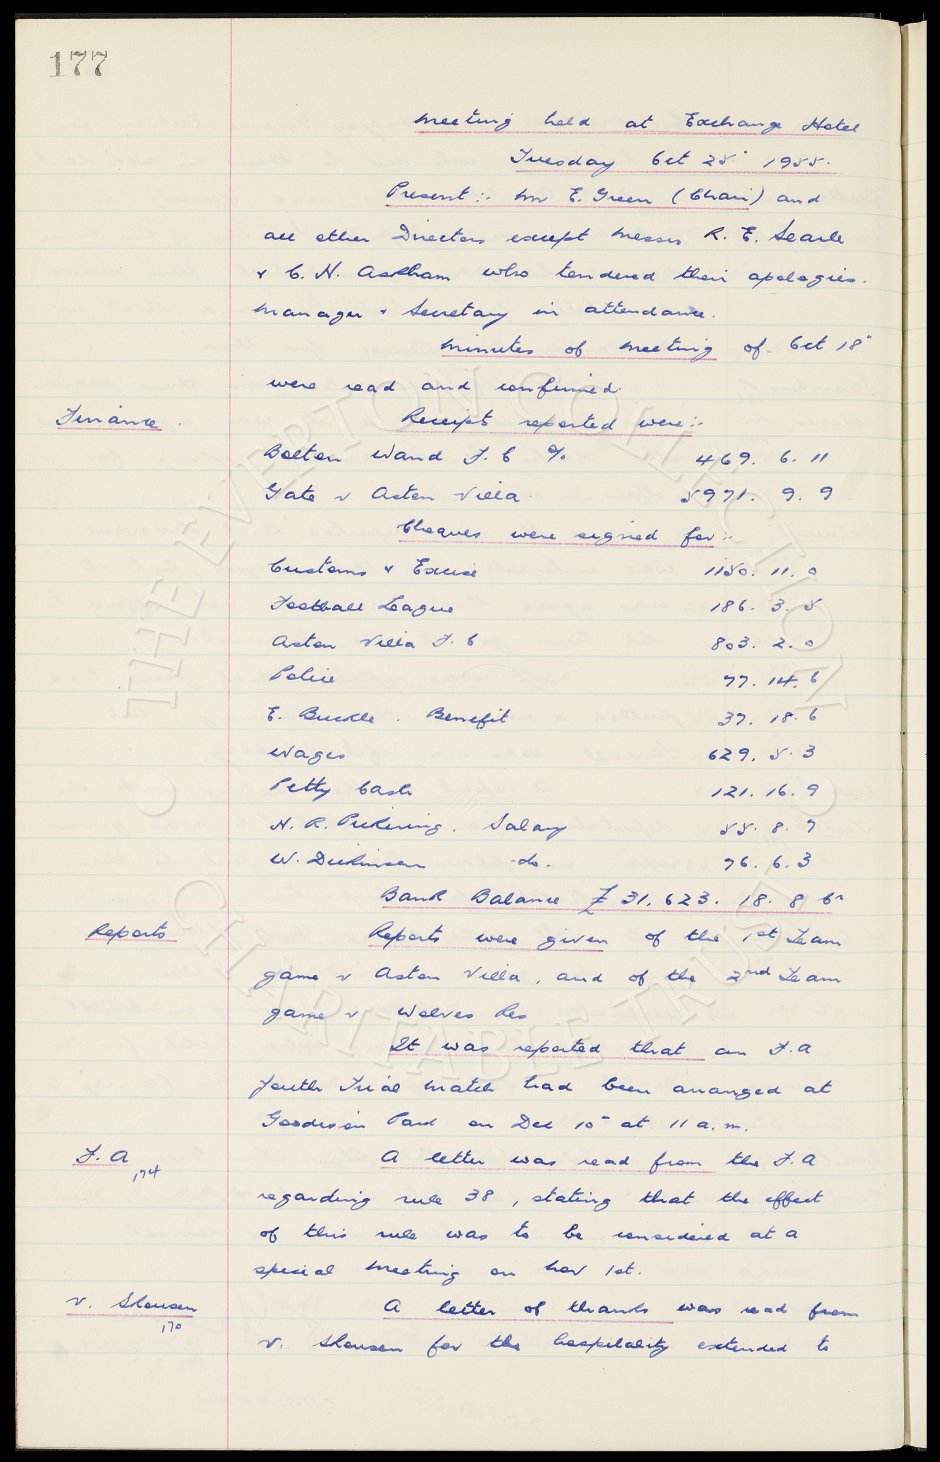 177
Meeting held at Exchange Hotel
Tuesday Oct 25" 1955.
Present :- Mr E. Green (Chair) and
all other Directors except Messrs R. E. Searle
& C. H. Askham who tendered their apologies.
Manager & Secretary in attendance.
Minutes of meeting of Oct 18"
were read and confirmed.
Finance
Receipts reported were :-
Bolton Wand F. C %
469. 6. 11
Gate v Aston Villa.
5971. 9. 9
Cheques were signed for :-
Customs & Excise
1150. 11. 0
Football League
186. 3. 5
Aston Villa F. C
803. 2. 0
Police
77. 14. 6
E. Buckle. Benefit
37. 18. 6
Wages
629. 5. 3
Petty Cash
121. 16. 9
H. R. Pickering. Salary
55. 8. 7
W. Dickinson do.
76. 6. 3
Bank Balance £31,623. 18. 8 Cr
Reports
Reports were given of the 1st Team
game v Aston Villa, and of the 2nd Team
game v Wolves Res
It was reported that an F.A
Youth Trial match had been arranged at
Goodison Park on Dec 10" at 11 a.m.
F. A
174
A letter was read from the F.A
regarding rule 38, stating that the effect
of this rule was to be considered at a
special meeting on Nov 1st.
V. Slousen
170
A letter of thanks was read from
V. Slousen for the hospitality extended to
© THE EVERTON COLLECTION
© CHARITABLE TRUST